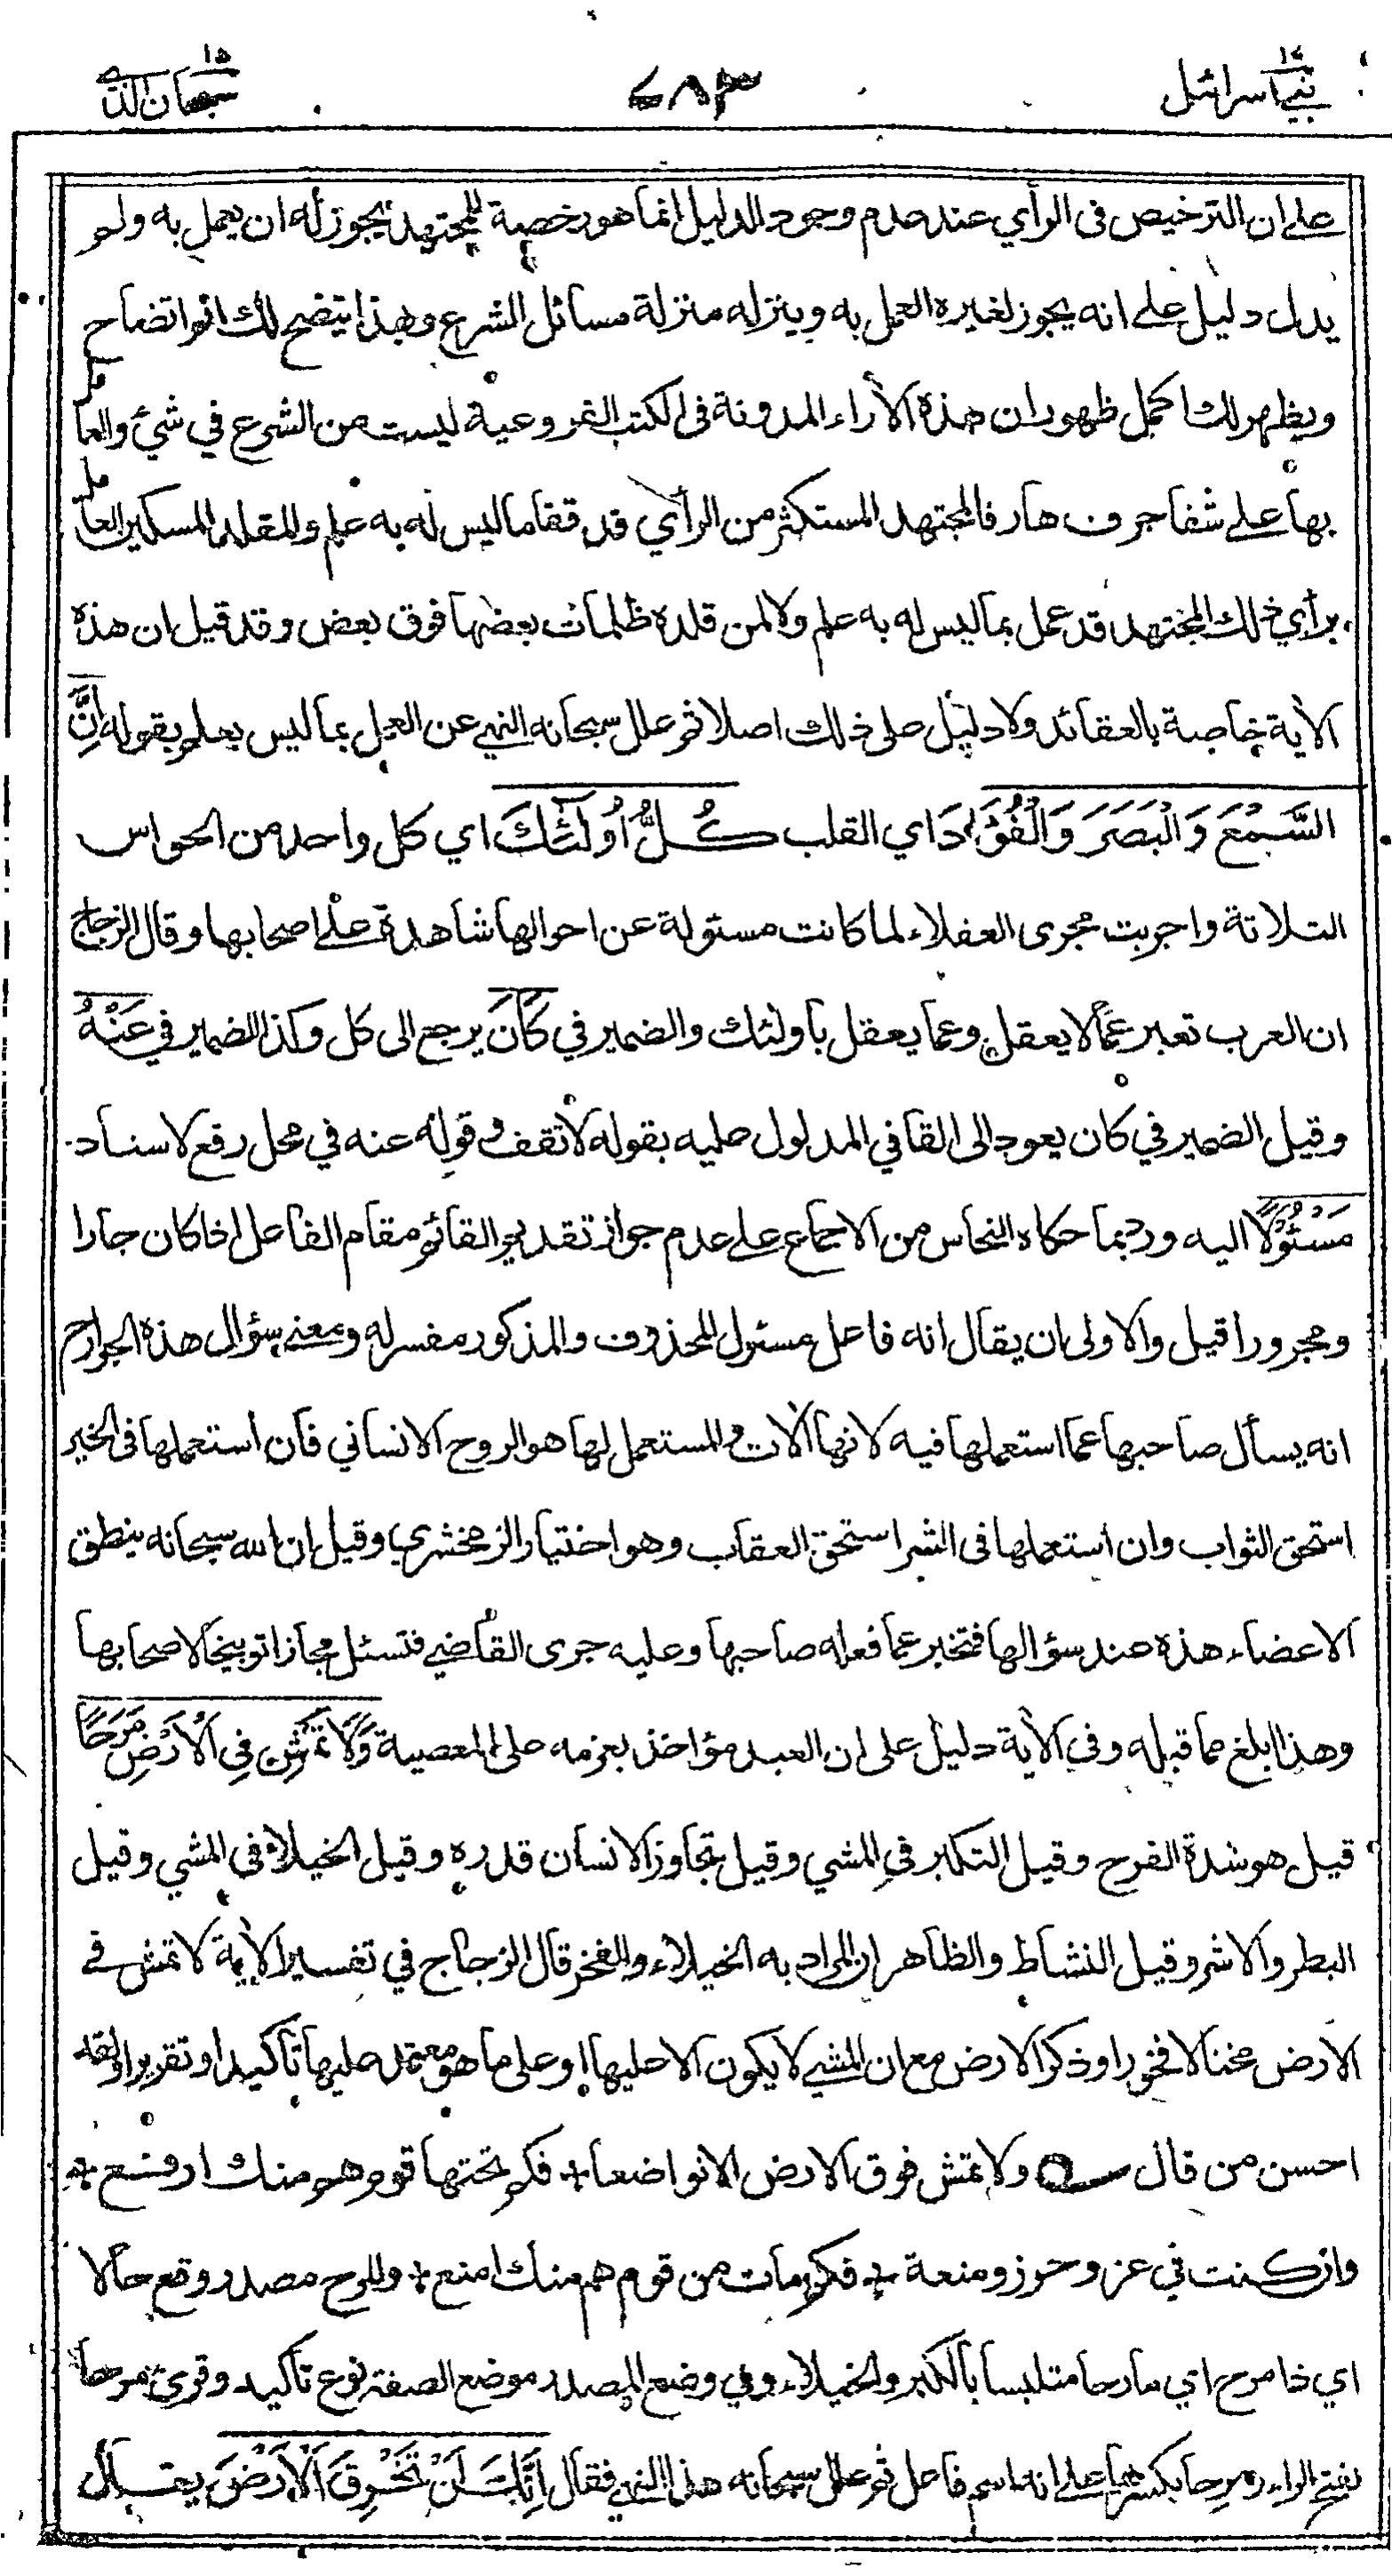 بني اسرائيل ١٧
٧٨٣
سبحان الذي ١٥
على ان الترخيص في الرأي عند عدم وجود الدليل انما هو رخصة للمجتهد يجوز له ان يعمل به ولم
يدل دليل على انه يجوز لغيره العمل به وينزله منزلة مسائل الشرع وبهذا يتضح لك اتم اتضاح
ويظهر لك اكمل ظهور ان هذه الأراء المدونة في الكتب الفروعية ليست من الشرع في شيء والعامل
بها على شفا جرف هار فالمجتهد المستكثر من الرأي قد قفا ما ليس له به علم والمقلد المسكين العامل
برأي ذلك المجتهد قد عمل بما ليس له به علم ولا لمن قلده ظلمات بعضها فوق بعض وقد قيل ان هذه
الأية خاصة بالعقائد ولا دليل على ذلك اصلا ثم علل سبحانه النهي عن العمل بما ليس بعلم بقوله إِنَّ
السَّمْعَ وَالْبَصَرَ وَالْفُؤَادَ اي القلب كُلُّ أُولَٰئِكَ اي كل واحد من الحواس
الثلاثة واجريت مجرى العقلاء لما كانت مسئولة عن احوالها شاهدة على اصحابها وقال الزجاج
ان العرب تعبر عما لا يعقل وعما يعقل بأولئك والضمير في كَانَ يرجع الى كل وكذا الضمير في عَنْهُ
وقيل الضمير في كان يعود الى القافي المدلول عليه بقوله لا تقف وقوله عنه في محل رفع لاسناد
مَسْئُوْلًا اليه ورد بما حكاه النحاس من الاجماع على عدم جواز تقديم القائم مقام الفاعل اذا كان جارا
ومجرورا قيل والاولى ان يقال انه فاعل مسئول المحذوف والمذكور مفسر له ومعنى سؤال هذه الجوارح
انه يسأل صاحبها عما استعملها فيه لانها ألات والمستعمل لها هو الروح الانساني فان استعملها في الخير
استحق الثواب وان استعملها في الشر استحق العقاب وهو اختيار الزمخشري وقيل ان الله سبحانه ينطق
الاعضاء هذه عند سؤالها فتخبر عما فعله صاحبها وعليه جرى القاضي فتسئل مجازا توبيخا لاصحابها
وهذا ابلغ مما قبله وفي الأية دليل على ان العبد مؤاخذ بعزمه على المعصية وَلَا تَمْشِ فِي الْاَرْضِ مَرَحًا
قيل هو شدة الفرح وقيل التكبر في المشي وقيل تجاوز الانسان قدره وقيل الخيلاء في المشي وقيل
البطر والاشر وقيل النشاط والظاهر ان المراد به الخيلاء والفخر قال الزجاج في تفسير الأية لا تمش في
الارض مختالا فخورا وذكر الارض مع ان المشي لا يكون الا عليها او على ما هو معتمد عليها تأكيدا وتقريرا ولقد
احسن من قال ولا تمش فوق الارض الا تواضعا + فكم تحتها قوم هم منك ارفع +
وان كنت في عز وحرز ومنعة + فكم مات من قوم هم منك امنع + والمرح مصدر وقع حالا
اي ذا مرح اي مارحا متلبسا بالكبر والخيلاء وفي وضع المصدر موضع الصفة نوع تأكيد وقرئ مرحا
بفتح الراء ومرحا بكسرها على انه اسم فاعل ثم علل سبحانه هذا النهي فقال اِنَّكَ لَنْ تَخْرِقَ الْاَرْضَ يقال